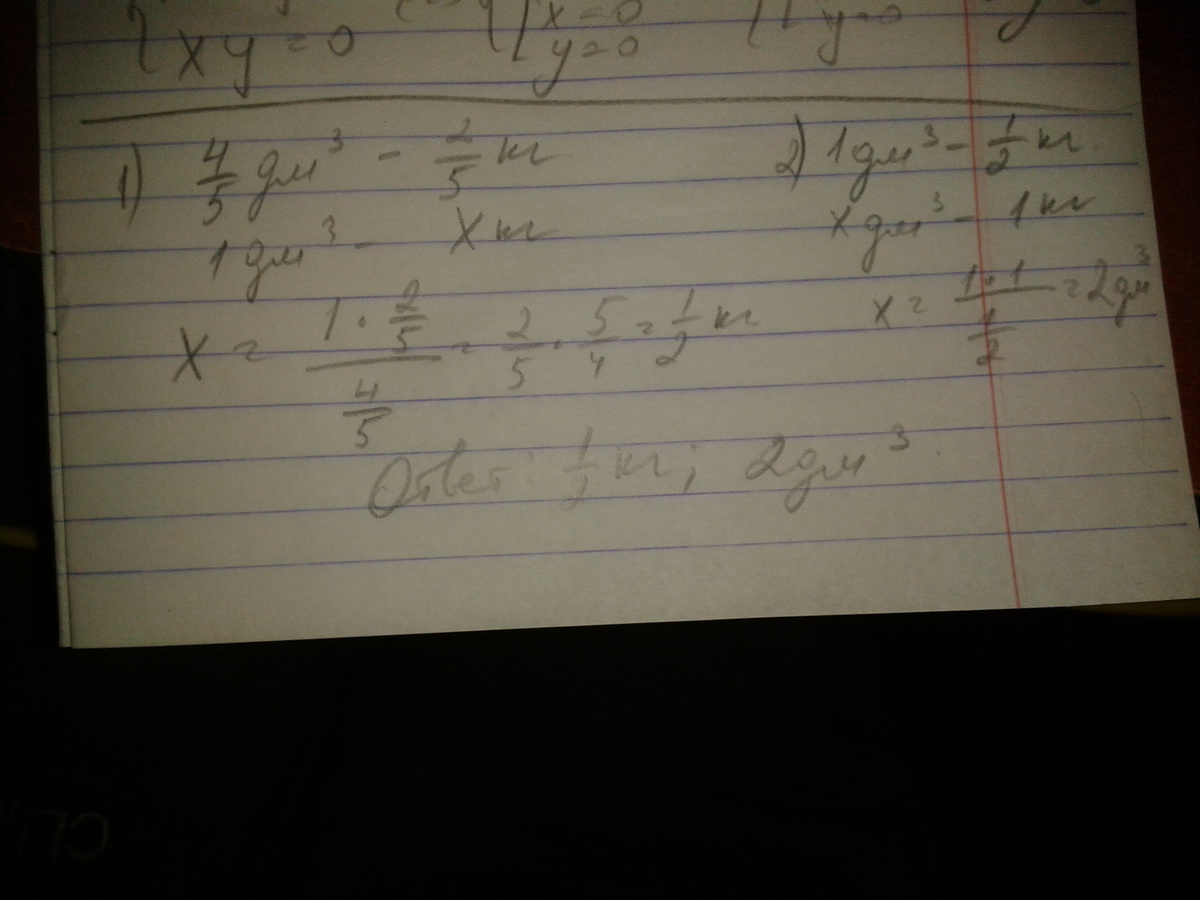 xy = 0
x = 0
y = 0
y = 0
1) 4/5 дм³ - 2/5 кг
1 дм³ - x кг
x = (1 · 2/5)/(4/5) = 2/5 · 5/4 = 1/2 кг
2) 1 дм³ - 1/2 кг.
x дм³ - 1 кг
x = (1·1)/(1/2) = 2 дм³
Ответ: 1/2 кг; 2 дм³.